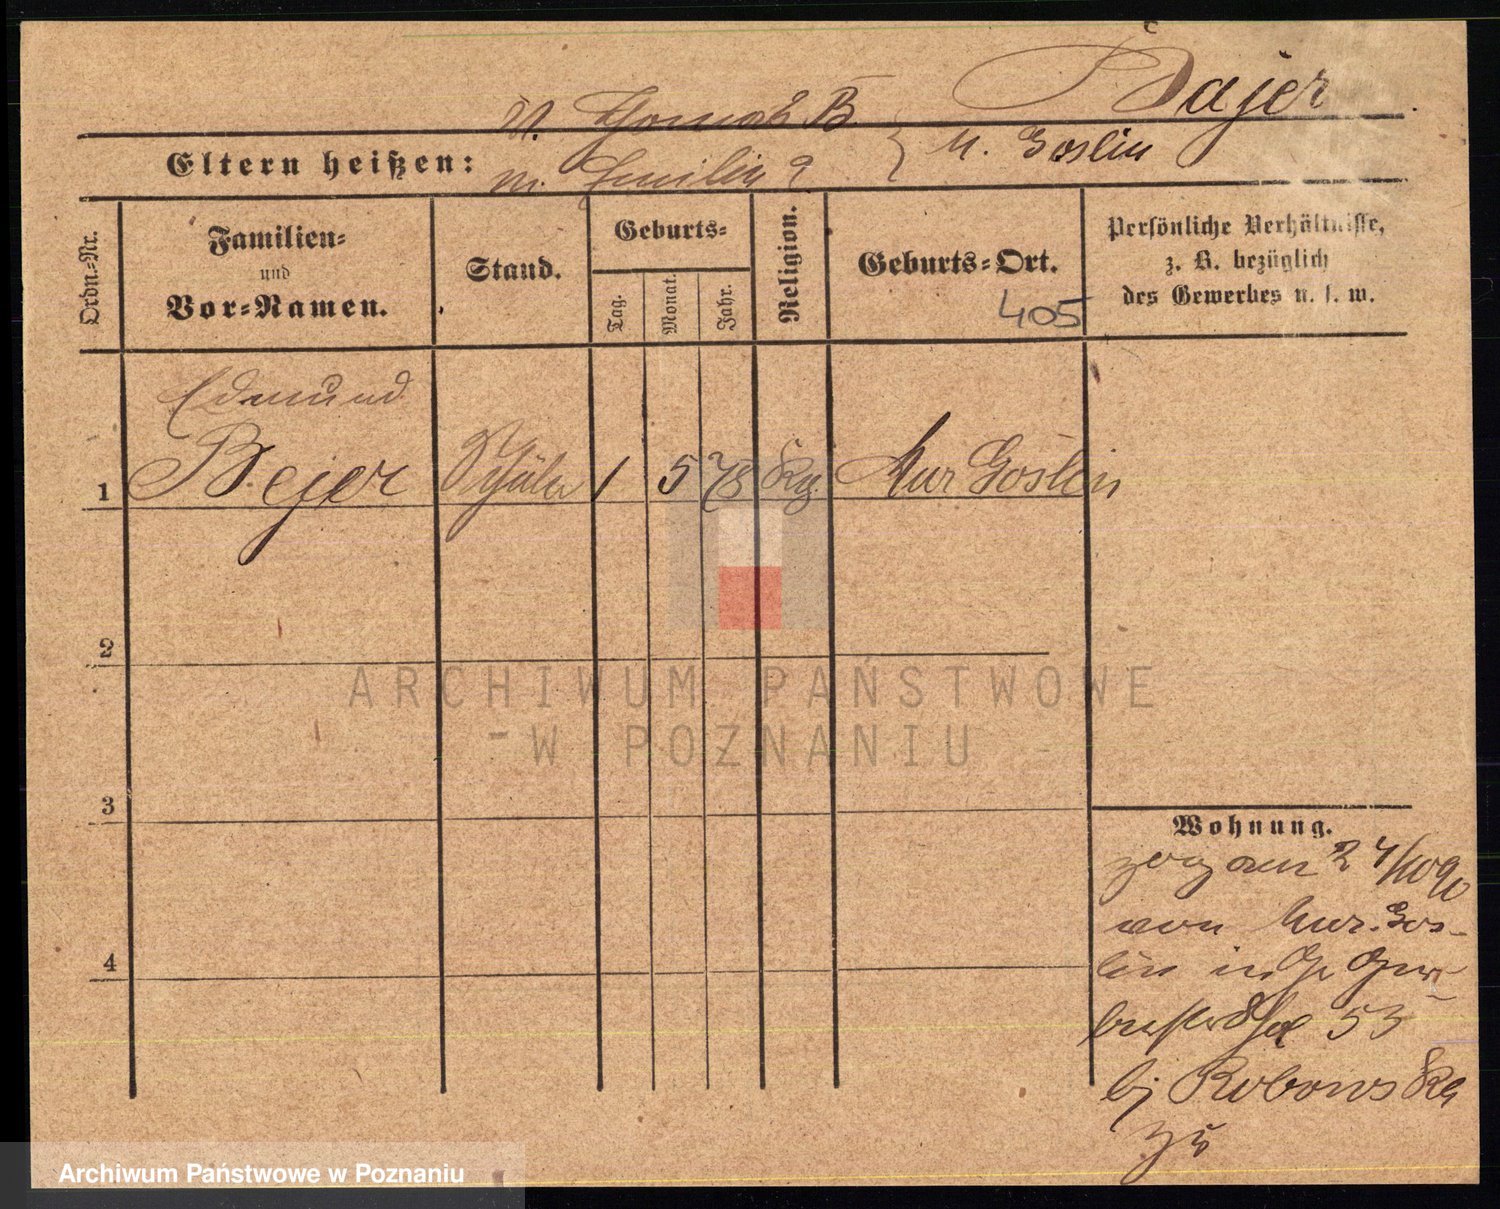 Bajer
V. Thomas B
M. Goslin
Eltern heißen:
m. Emilie ?
Ordn.-Nr.
Familien-
und
Vor-Namen.
Stand.
Geburts-
Tag.
Monat.
Jahr.
Religion.
Geburts-Ort.
405
Persönliche Verhältnisse,
z. B. bezüglich
des Gewerbes u. s. w.
Edmund
1 Bejer Schüler 1 5 78 Kg. Mur Goslin
2
3
4
Wohnung.
zog am 24/10 90
von Mur. Gos-
lin in
53
bj Robowska
zu
ARCHIWUM PAŃSTWOWE
W POZNANIU
Archiwum Państwowe w Poznaniu